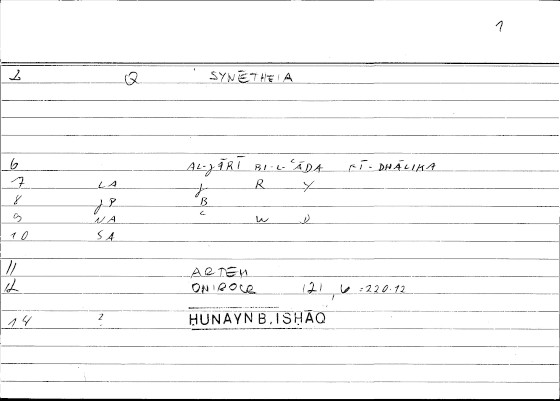 1
1 Q SYNĒTHEIA
6 AL-JĀRĪ BI-L-ʿĀDA FĪ-DHĀLIKA
7 LA J R Y
8 JP B
9 NA ʿ W D
10 SA
11 ARTEM
12 ONIROCR 121, 6 :220.12
14 ? ḤUNAYN B. ISḤĀQ